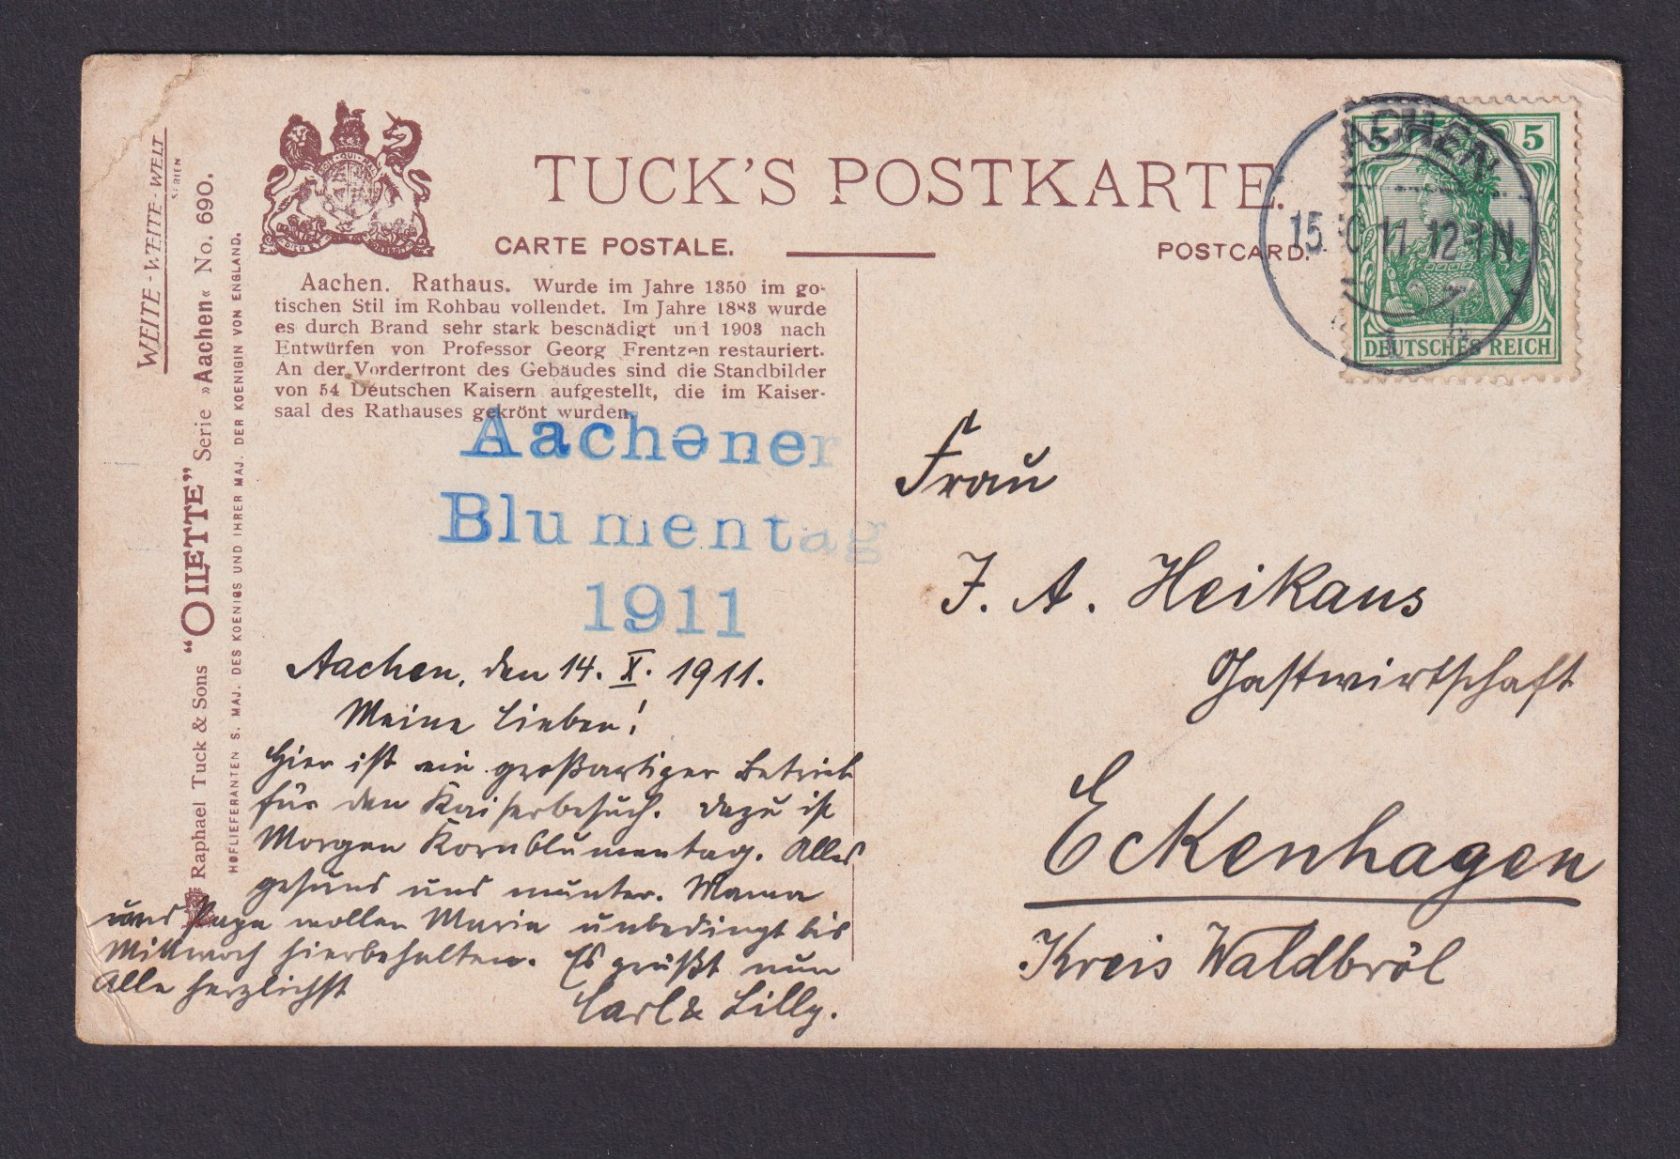 WEITE-WEITE-WELT
SERIEN
Raphael Tuck & Sons "OILETTE" Serie »Aachen« No. 690.
HOFLIEFERANTEN S. MAJ. DES KOENIGS UND IHRER MAJ. DER KOENIGIN VON ENGLAND.
TUCK'S POSTKARTE.
CARTE POSTALE.
POSTCARD.
Aachen. Rathaus. Wurde im Jahre 1350 im go-
tischen Stil im Rohbau vollendet. Im Jahre 1883 wurde
es durch Brand sehr stark beschädigt und 1903 nach
Entwürfen von Professor Georg Frentzen restauriert.
An der Vorderfront des Gebäudes sind die Standbilder
von 54 Deutschen Kaisern aufgestellt, die im Kaiser-
saal des Rathauses gekrönt wurden.
Aachener
Blumentag
1911
Aachen, den 14. X. 1911.
Meine Lieben!
Hier ist ein großartiger Betrieb
für den Kaiserbesuch. Dazu ist
Morgen Kornblumentag. Alles
gesund und munter. Mama
und Papa wollen Maria unbedingt bis
Mittwoch hierbehalten. Es grüßt nun
Alle herzlichst
Carl & Lilly.
AACHEN
15.10.11.12-1N
1 h
5 5
DEUTSCHES REICH
Frau
J. A. Heikaus
Gastwirtschaft
Eckenhagen
Kreis Waldbröl